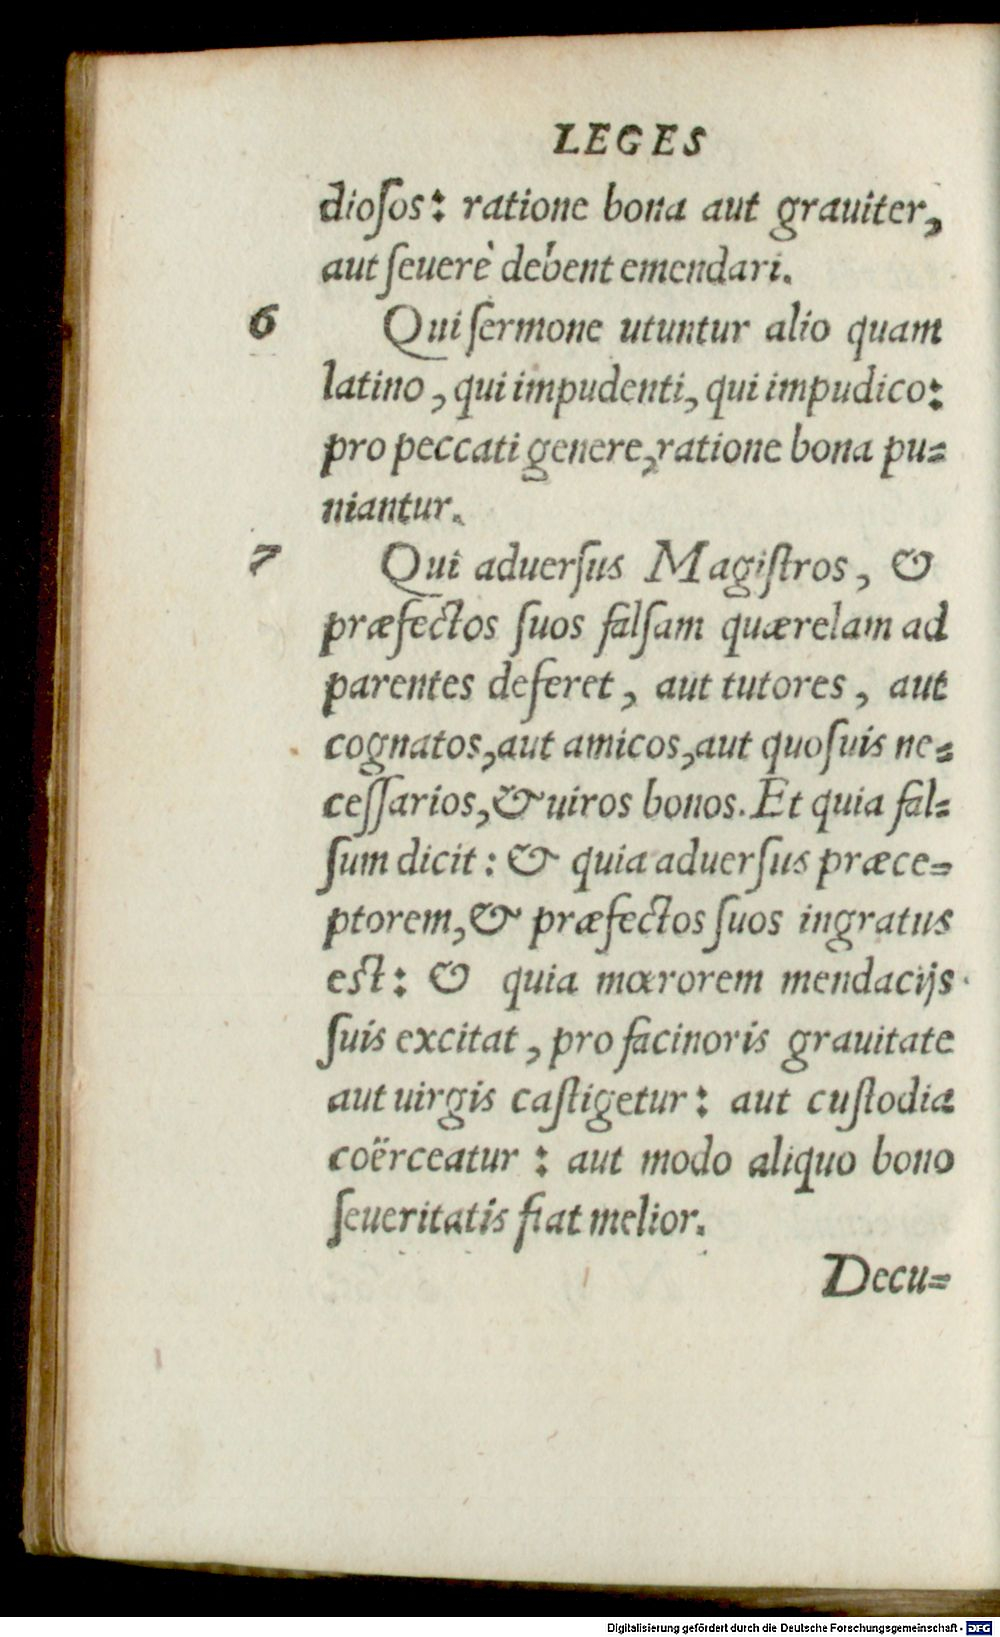 LEGES
dioſos: ratione bona aut grauiter,
aut ſeuerè debent emendari.
6 Qui ſermone utuntur alio quam
latino, qui impudenti, qui impudico:
pro peccati genere, ratione bona pu=
niantur.
7 Qui aduerſus Magiſtros, &
præfectos ſuos falſam quærelam ad
parentes deferet, aut tutores, aut
cognatos, aut amicos, aut quoſuis ne=
ceſſarios, & uiros bonos. Et quia fal=
ſum dicit: & quia aduerſus præce=
ptorem, & præfectos ſuos ingratus
eſt: & quia mœrorem mendacijs
ſuis excitat, pro facinoris grauitate
aut uirgis caſtigetur: aut cuſtodia
coërceatur: aut modo aliquo bono
ſeueritatis fiat melior.
Decu=
Digitalisierung gefördert durch die Deutsche Forschungsgemeinschaft - DFG